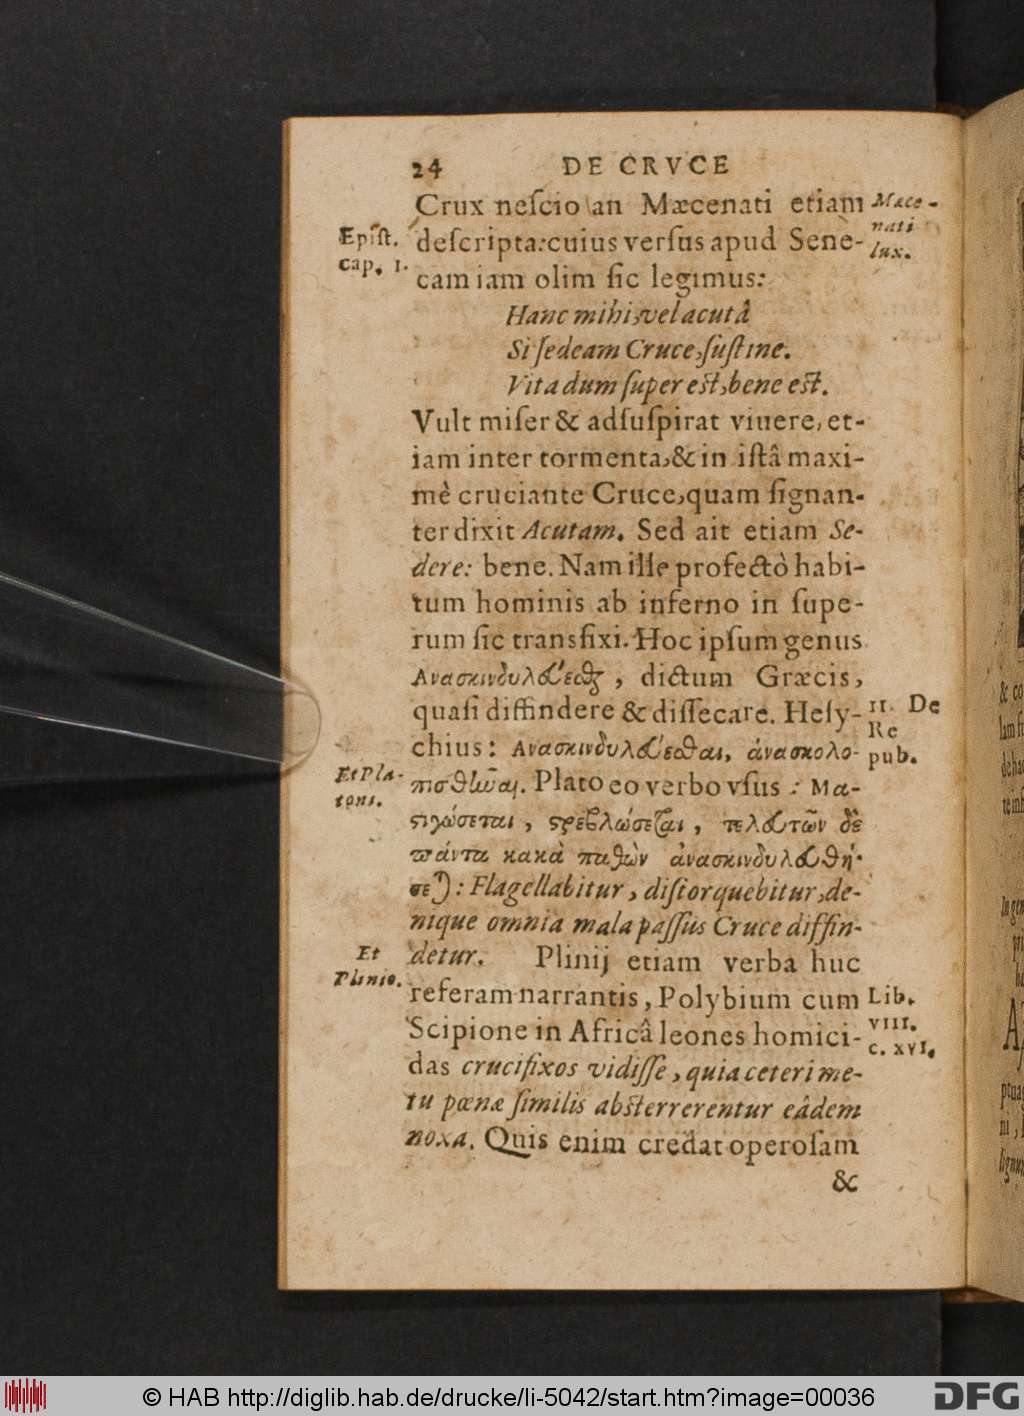 24 DE CRVCE
Crux neſcio an Mæcenati etiam
deſcripta: cuius verſus apud Sene-
cam iam olim ſic legimus:
Hanc mihi, vel acutâ
Si ſedeam Cruce, ſuſtine.
Vita dum ſupereſt, bene eſt.
Vult miſer & adſuſpirat viuere, et-
iam inter tormenta, & in iſtâ maxi-
mè cruciante Cruce, quam ſignan-
ter dixit Acutam. Sed ait etiam Se-
dere: bene. Nam ille profectò habi-
tum hominis ab inferno in ſupe-
rum ſic transfixi. Hoc ipſum genus
Ανασκινδυλεύεσθαι, dictum Græcis,
quaſi diffindere & diſſecare. Heſy-
chius: Ανασκινδυλεύεσθαι, ἀνασκολο-
πισθῆναι. Plato eo verbo vſus: Μα-
ϛιγώσεται, ϛρεβλώσεται, τελευτῶν δὲ
πάντα κακὰ παθὼν ἀνασκινδυλευθή-
σεται: Flagellabitur, diſtorquebitur, de-
nique omnia mala paſſus Cruce diffin-
detur. Plinij etiam verba huc
referam narrantis, Polybium cum
Scipione in Africâ leones homici-
das crucifixos vidiſſe, quia ceteri me-
tu pœnæ ſimilis abſterrerentur eâdem
noxa. Quis enim credat operoſam
&
Epiſt.
cap. 1.
Mæce-
nati
lux.
II. De
Re
pub.
Et Pla-
toni.
Et
Plinio.
Lib.
VIII.
c. XVI.
© HAB http://diglib.hab.de/drucke/li-5042/start.htm?image=00036
DFG